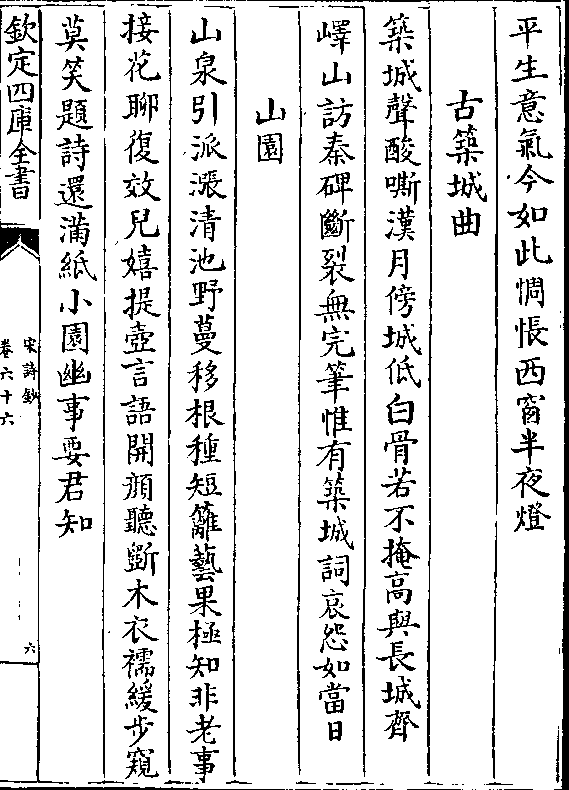 平生意氣今如此惆悵西窗半夜燈
古築城曲
築城聲酸嘶漢月傍城低白骨若不掩高與長城齊
嶧山訪秦碑斷裂無完筆惟有築城詞哀怨如當日
山園
山泉引派漲清池野蔓移根種短籬藝果極知非老事
接花聊復效兒嬉提壺言語開顔聽斷木衣襦緩步窺
莫笑題詩還滿紙小園幽事要君知
欽定四庫全書
宋詩鈔
卷六十六
六